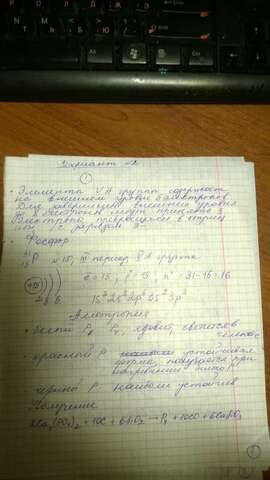 Вариант №2
①
• Элементы V А группы содержат
на внешнем уровне 5 электронов
Для завершения внешнего уровня
до 8 электронов могут принимать 3
электрона превращаясь в
ион с зарядом 3-
• Фосфор
P № 15, III период V А группа
+15 ) ) )
2 8 5
e = 15, p = 15, n = 31-15=16
1s² 2s² 2p⁶ 3s² 3p³
Аллотропия
• белый P₄ ядовит,
• красный P устойчивая
форма, получается при
нагревании
черный P наиболее устойчив
Получение
2Ca₃(PO₄)₂ + 10C + 6SiO₂ → P₄ + 10CO + 6CaSiO₃